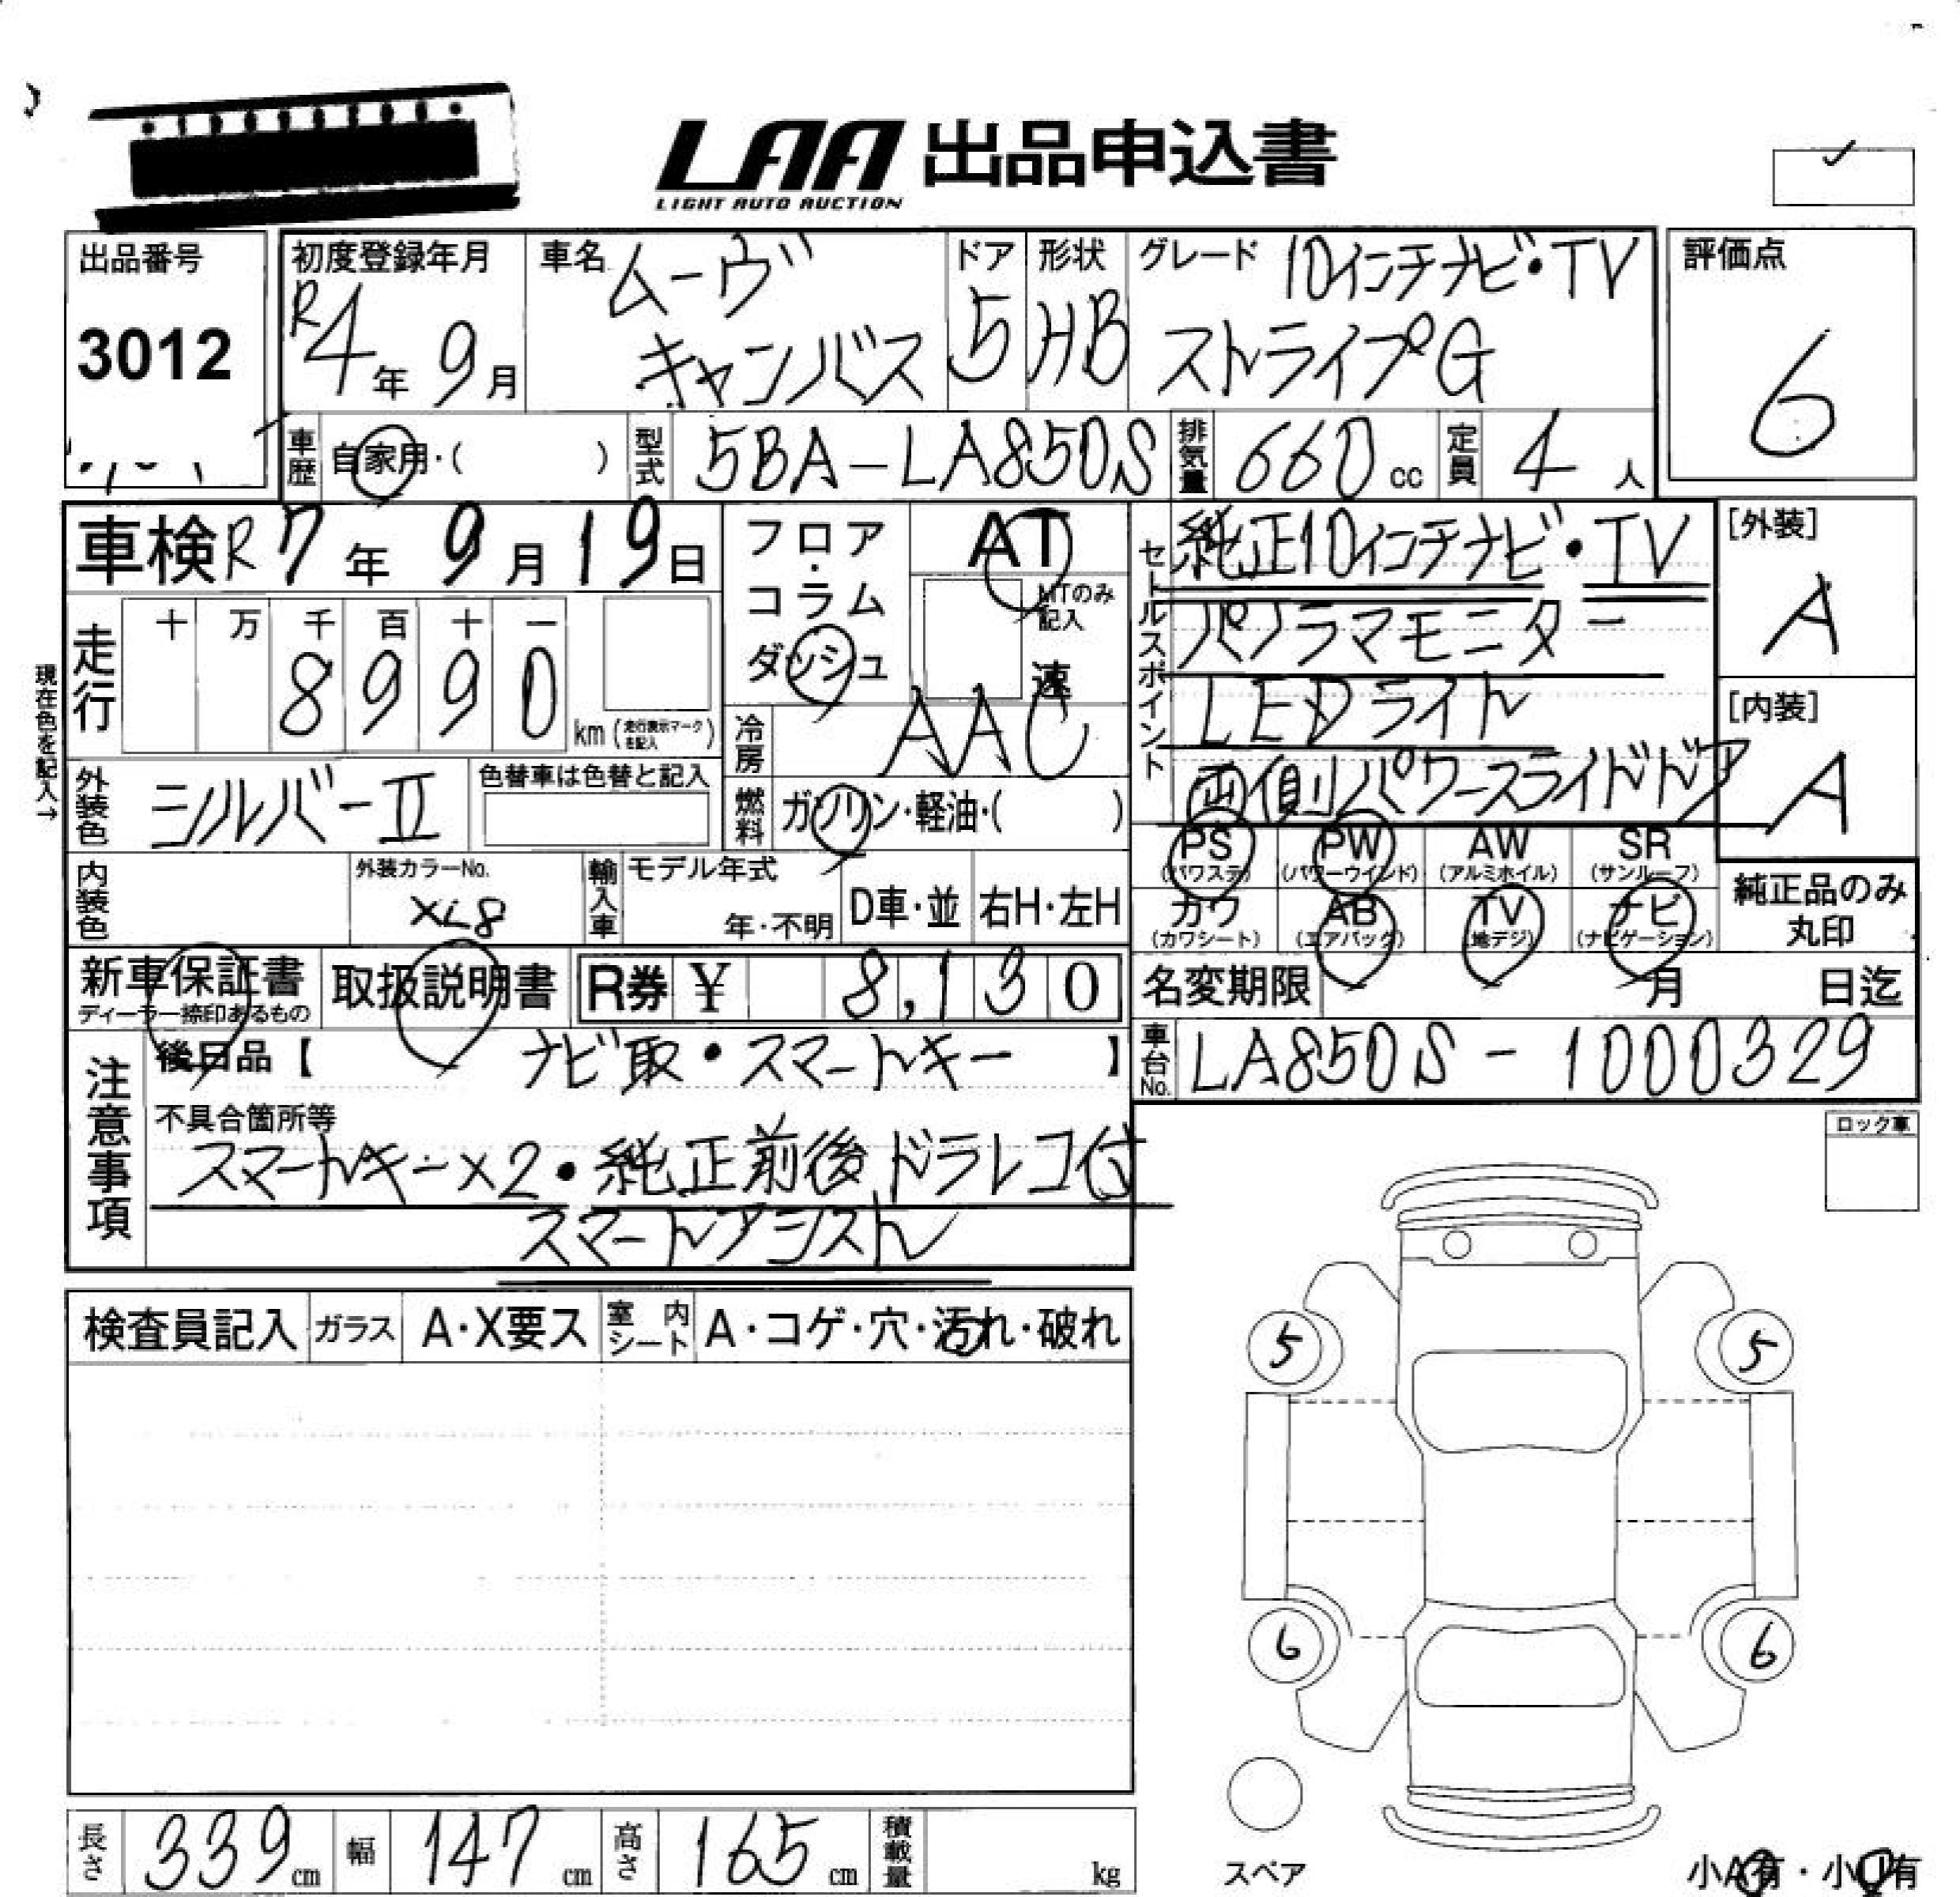 LAA 出品申込書
LIGHT AUTO AUCTION
出品番号
3012
初度登録年月
R4年 9月
車名
ムーヴ
キャンバス
ドア
5
形状
HB
グレード 10インチナビ・TV
ストライプG
評価点
6
車歴 自家用・( )
型式 5BA-LA850S
排気量 660 cc
定員 4 人
車検 R7年 9月 19日
フロア・コラム
ダッシュ
AT
MTのみ記入
速
セールスポイント
純正10インチナビ・TV
パノラマモニター
LEDライト
両側パワースライドドア
[外装]
A
[内装]
A
現在色を記入→
走行
十 万 千 百 十 一
8 9 9 0
km (走行表示マークを記入)
冷房 AAC
外装色 シルバーII
色替車は色替と記入
燃料 ガソリン・軽油・( )
内装色
外装カラーNo.
XL8
輸入車
モデル年式
年・不明
D車・並
右H・左H
PS (パワステ)
PW (パワーウインド)
AW (アルミホイル)
SR (サンルーフ)
カワ (カワシート)
AB (エアバック)
TV (地デジ)
ナビ (ナビゲーション)
純正品のみ
丸印
新車保証書
ディーラー捺印あるもの
取扱説明書
R券 ¥ 8,130
名変期限 月 日迄
車台No. LA850S-1000329
注意事項
後日品【 ナビ取・スマートキー 】
不具合箇所等
スマートキー×2・純正前後ドラレコ付
スマートアシスト
ロック車
検査員記入
ガラス A・X要ス
室内シート A・コゲ・穴・汚れ・破れ
5 5
6 6
スペア
小A有・小U有
長さ 339 cm
幅 147 cm
高さ 165 cm
積載量 kg